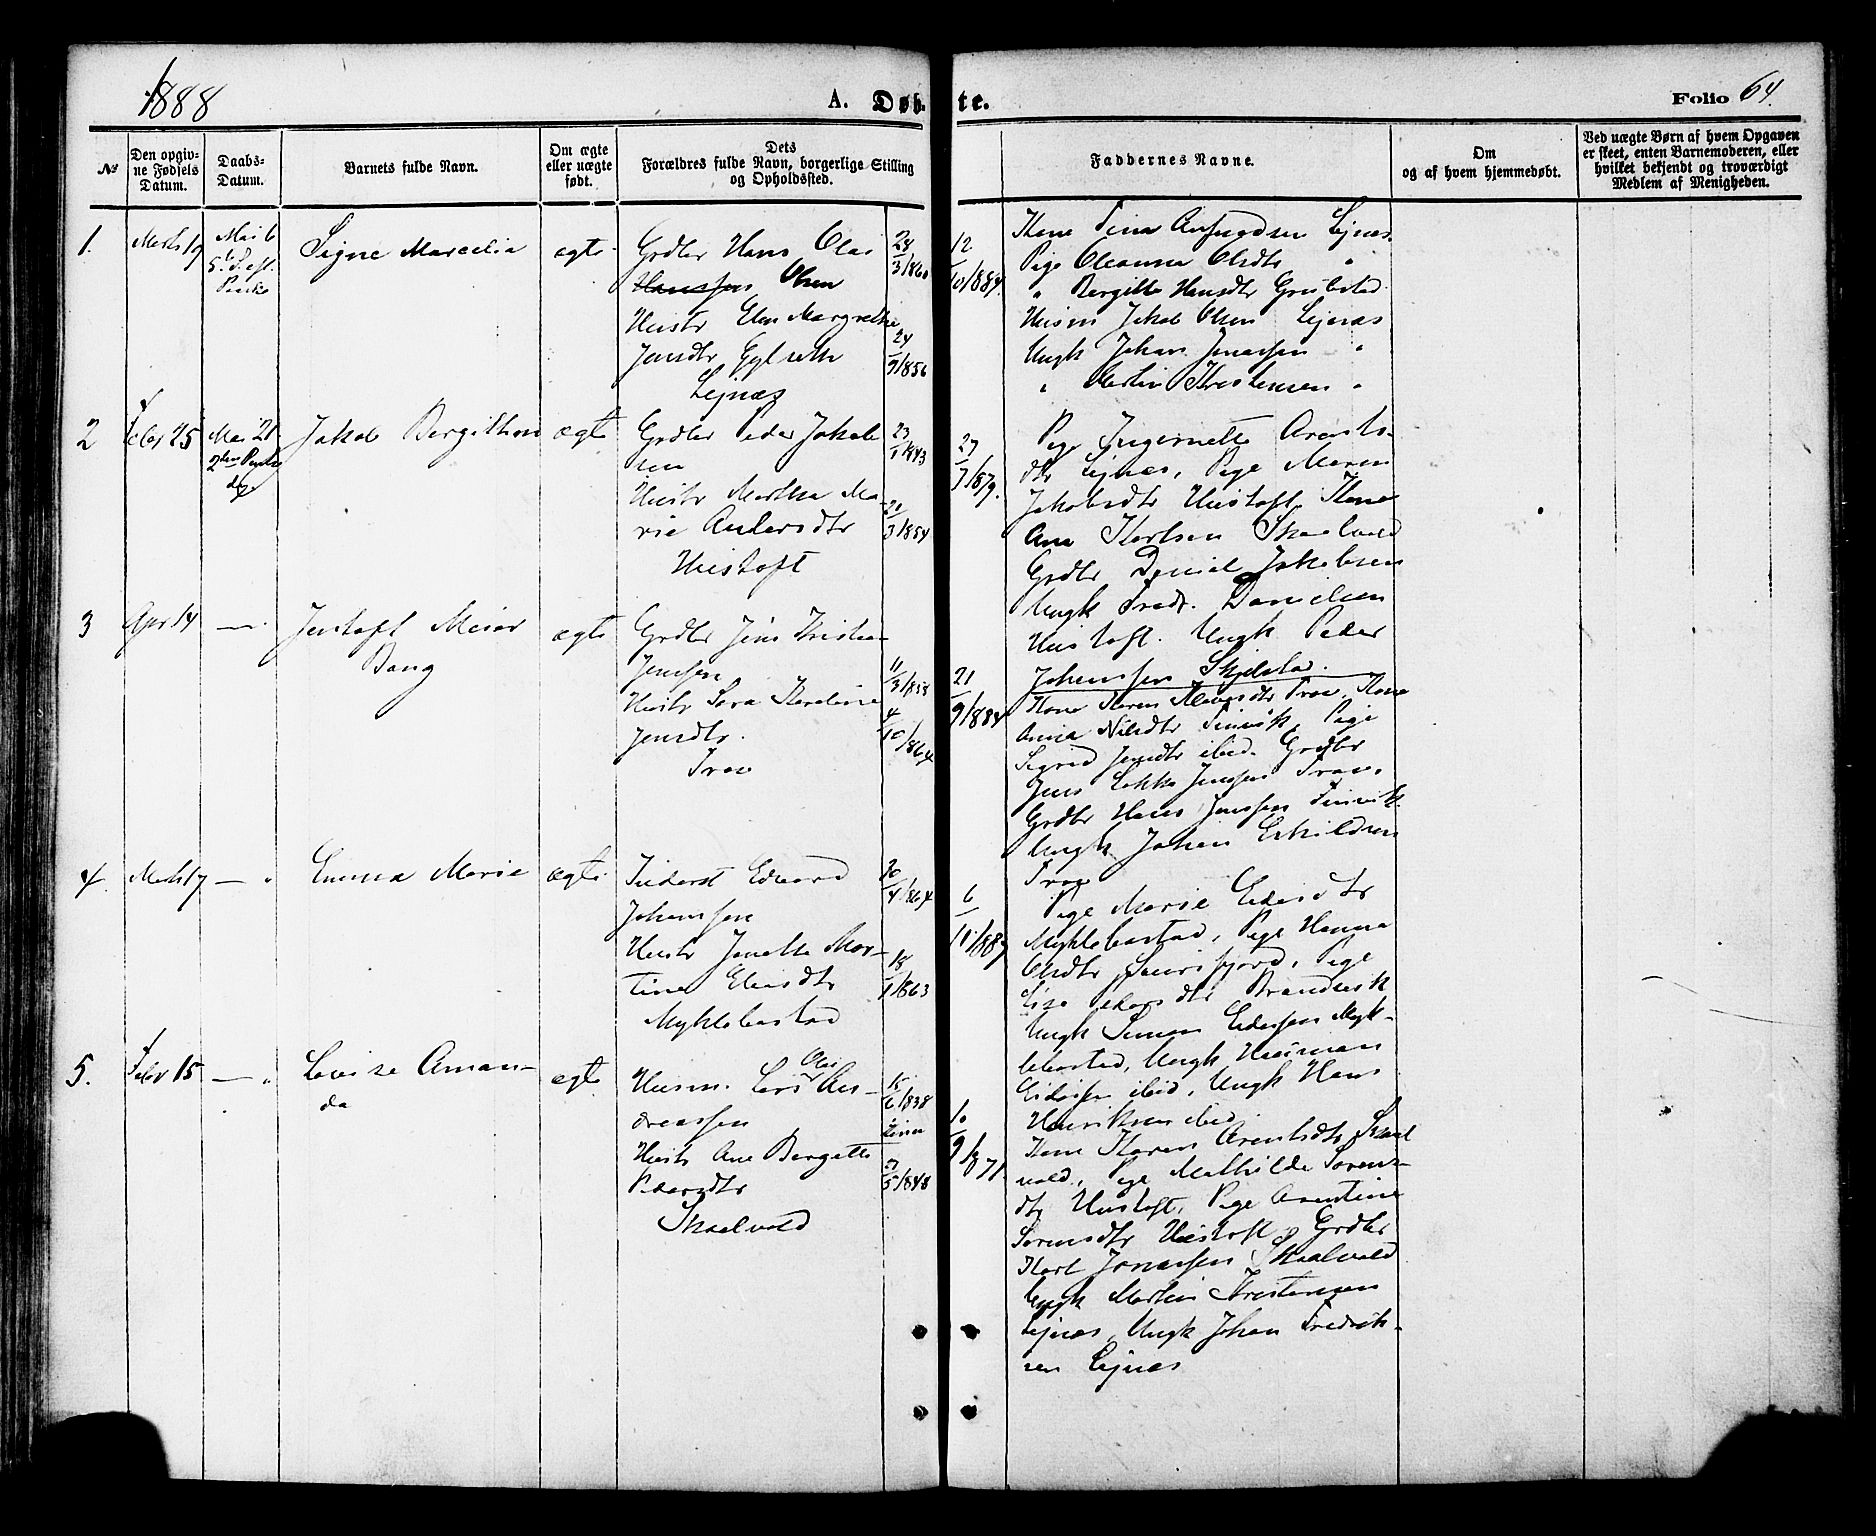 1888
A. Døb-
te.
Folio 64.
№
Den opgiv-
ne Fødsels
Datum.
Daabs-
Datum.
Barnets fulde Navn.
Om ægte
eller uægte
født.
Dets
Forældres fulde Navn, borgerlige Stilling
og Opholdssted.
Faddernes Navne.
Om
og af hvem hjemmedøbt.
Ved uægte Børn af hvem Opgaven
er skeet, enten Barnemoderen, eller
hvilket bekjendt og troværdigt
Medlem af Menigheden.
1.
Marts 19
Mai 6
5. S. eft.
Paaske
Signe Marcelia
ægte
Grdbr Hans Olai
Hanssen Olsen
Hustr Elen Margrethe
Jensdtr
Lejnæs
24/3 1860
24/9 1856
12/10 1884.
Kone Tina Lejnæs
Pige Oleanna Olsdtr "
" Bergitte Hansdtr
Husm Jakob Olsen Lejnæs
Ungk Johan Jonassen "
" Martin Kristensen "
2
Febr 25
Mai 21
2den Pintse
dag
Jakob Bergithon
ægte
Grdbr Peder Jakob
sen
Hustr Martha Ma-
rie Andersdtr
Hustoft
23/1 1843
3/1854
27/7 1879.
Pige Ingernette Arents-
dtr Lejnæs, Pige Maren
Jakobsdtr Hustoft, Kone
Ane Karlsen Skaalvold
Grdbr Daniel Jakobsen
Ungk Fredr. Danielsen
Hustoft. Ungk Peder
Johanssen
3
Apr 14
—
Jentoft Meier
Bang
ægte
Grdbr Jens Kristian
Jenssen
Hustr Sara Karoline
Jensdtr.
Traa
11/3 1853
4/10 1864
21/9 1884
Kone Karen Traa, Kone
Anna Nilsdtr Finvik, Pige
Sigrid Jensdtr ibid. Grdbr
Jens Jenssen Traa,
Grdbr Hans Jenssen Finvik
Ungk Johan Eskildsen
Traa
4.
Marts 17
— "
Emma Marie
ægte
Inderst Edvard
Johanssen
Hustr Jonette Mar-
tine Eliasdtr
Myklebostad
20/4 1864
18/1 1863
6/11 1887
Pige Marie
Myklebostad, Pige Hanna
Olsdtr Pige
Lisa Pedersdtr Brandsvik
Ungk Simon Myk-
lebostad, Ungk
ibid, Ungk Hans
Henriksen ibid
5.
Febr 15
— "
Lovise Aman-
da
ægte
Husm. Lars Olai An-
dreassen
Hustr Ane Bergette
Pedersdtr
Skaalvold
15/6 1838
5/1848
10/9 1871.
Kone Karen Arentsdtr Skaal
vold, Pige Mathilde Sørens-
dtr Hustoft, Pige Arentine
Sørensdtr Hustoft, Grdbr
Karl Jonassen Skaalvold
Ungk Martin Kristensen
Lejnæs, Ungk Johan Fredrik-
sen Lejnæs